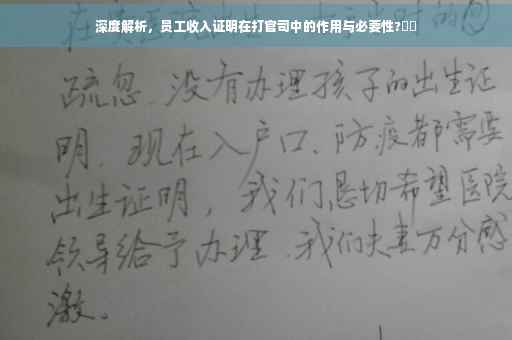 深度解析，员工收入证明在打官司中的作用与必要性?
疏忽.没有办理孩子的出生证
明.现在入户口、防疫都需要
出生证明，我们恳切希望医院
领导给予办理.我们夫妻万分感
激。